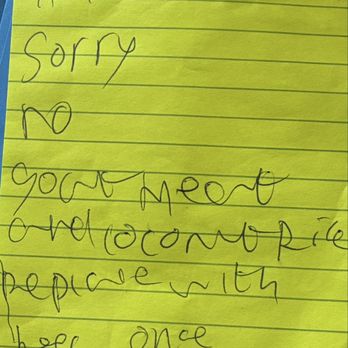 Sorry
no
goat meat
and coconut Rice
with
once